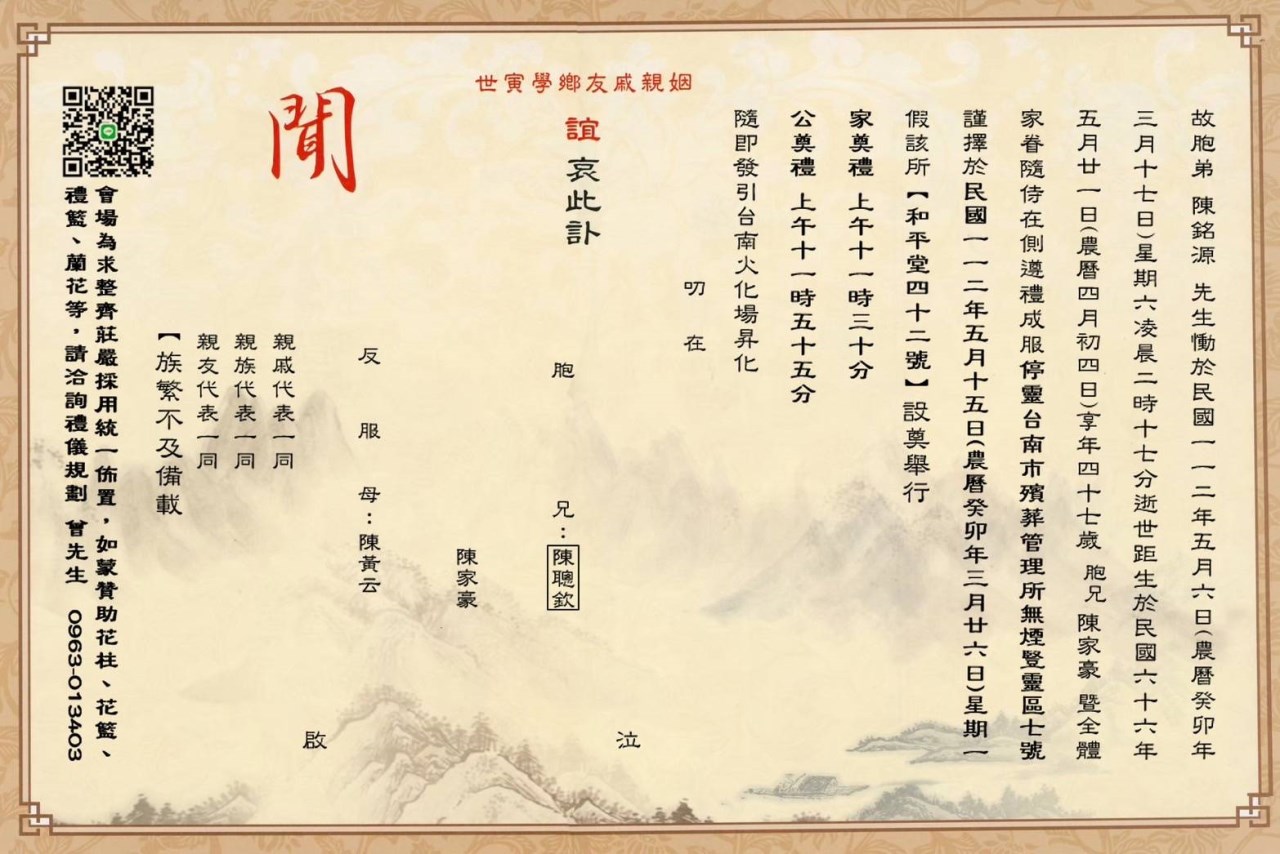 故胞弟 陳銘源 先生慟於民國一一二年五月六日(農曆癸卯年
三月十七日)星期六凌晨二時十七分逝世距生於民國六十六年
五月廿一日(農曆四月初四日)享年四十七歲 胞兄 陳家豪 暨全體
家眷隨侍在側遵禮成服停靈台南市殯葬管理所無煙豎靈區七號
謹擇於民國一一二年五月十五日(農曆癸卯年三月廿六日)星期一
假該所【和平堂四十二號】設奠舉行
家奠禮 上午十一時三十分
公奠禮 上午十一時五十五分
隨即發引台南火化場昇化
叨在
姻親戚友鄉學寅世
誼 哀此訃
聞
泣
胞兄：陳聰欽
陳家豪
反服母：陳黃云
啟
親戚代表一同
親族代表一同
親友代表一同
【族繁不及備載
會場為求整齊莊嚴採用統一佈置，如蒙贊助花柱、花籃、
禮籃、蘭花等，請洽詢禮儀規劃 曾先生 0963-013403